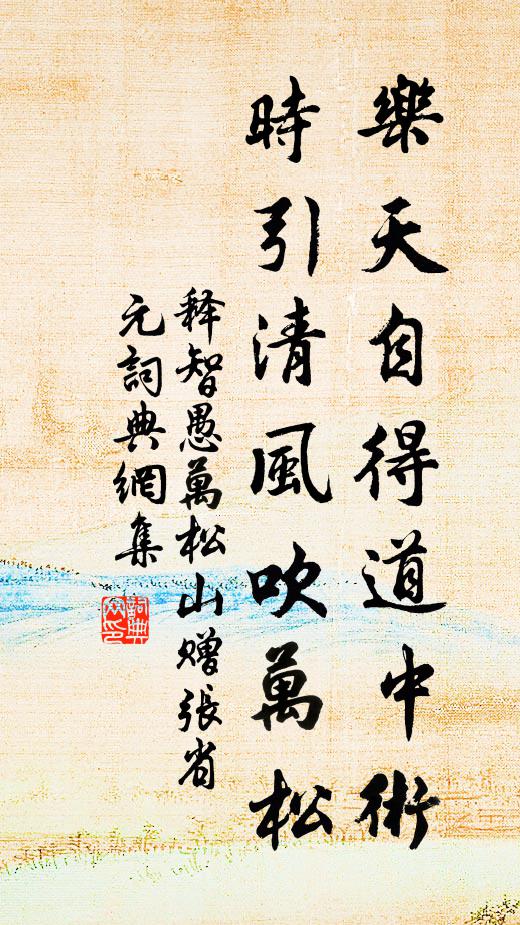 樂天自得道中術
時引清風吹萬松
释智愚萬松山赠張省
元詞典網集